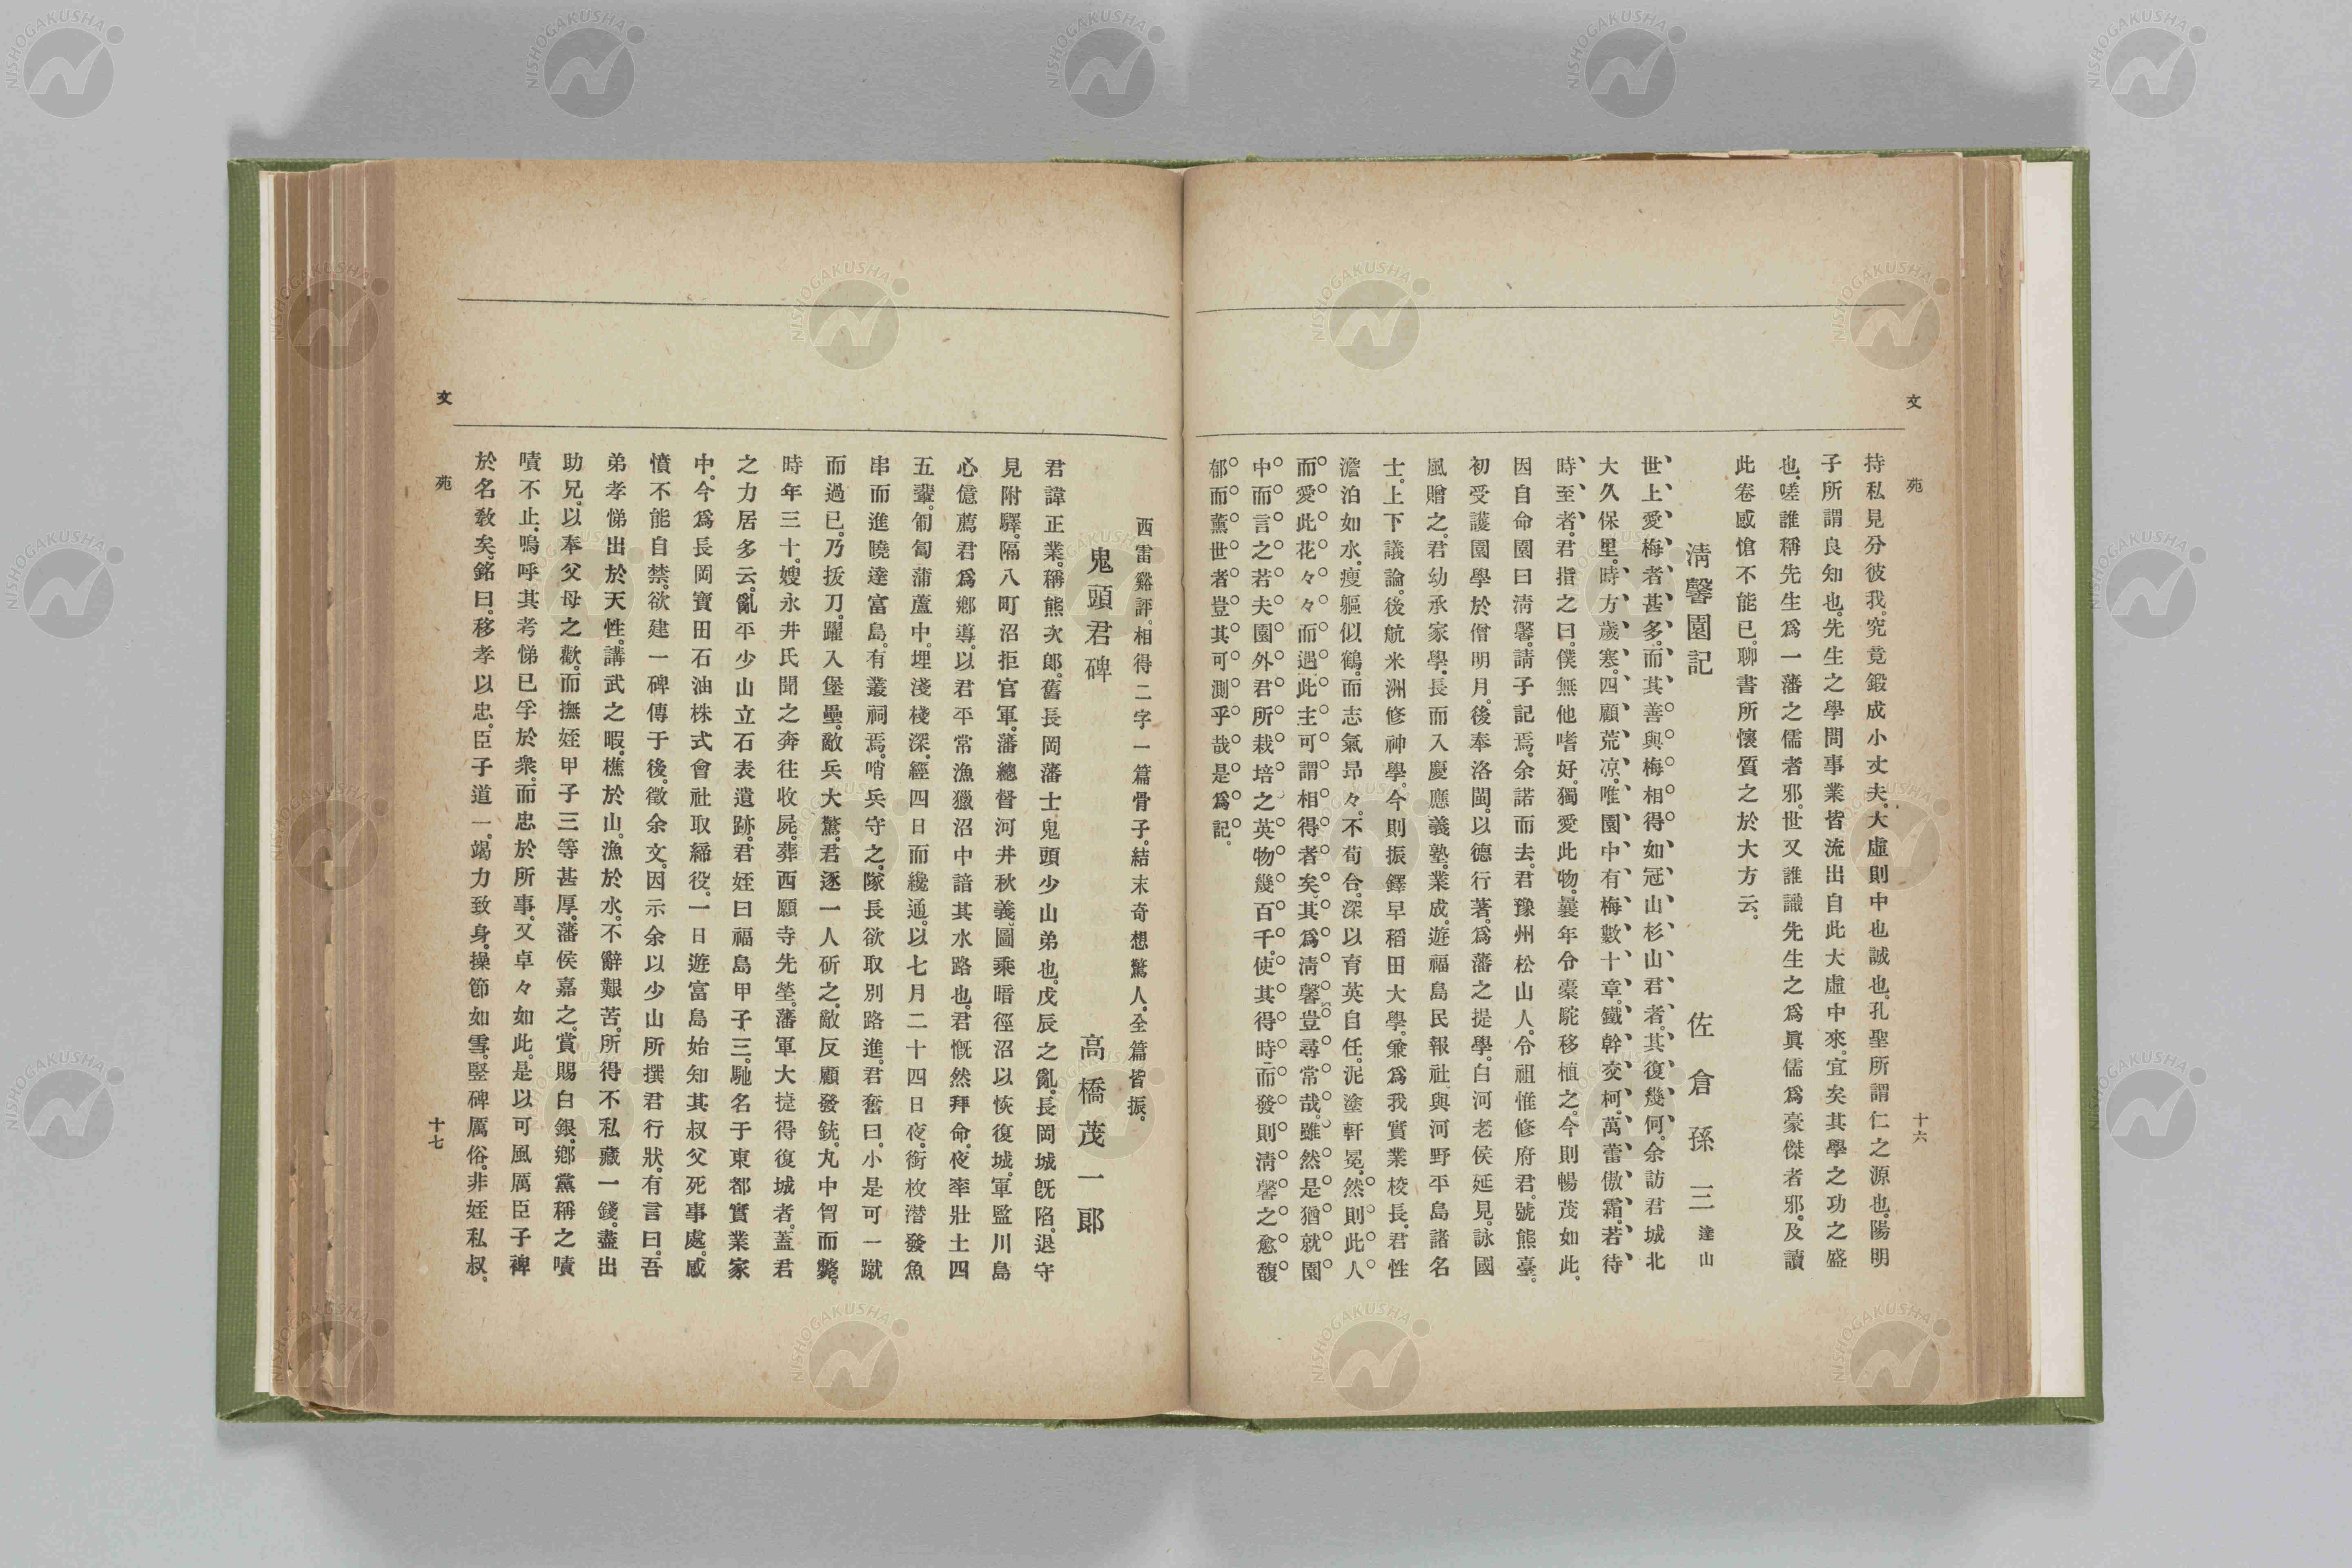 文苑
十六
持私見分彼我。究竟鍛成小丈夫。大虛則中也誠也。孔聖所謂仁之源也。陽明
子所謂良知也。先生之學問事業皆流出自此大虛中來。宜矣其學之功之盛
也。嗟誰稱先生爲一藩之儒者邪。世又誰識先生之爲眞儒爲豪傑者邪。及讀
此卷感愴不能已。聊書所懷質之於大方云。
淸馨園記
佐倉孫三 達山
世上愛梅者甚多。而其善與梅相得如冠山杉山君者。其復幾何。余訪君城北
大久保里。時方歲寒。四顧荒凉。唯園中有梅數十章。鐵幹交柯。萬蕾傲霜。若待
時至者。君指之曰。僕無他嗜好。獨愛此物。曩年令槖駝移植之。今則暢茂如此。
因自命園曰淸馨。請子記焉。余諾而去。君豫州松山人。令祖惟修府君。號熊臺。
初受護園學於僧明月。後奉洛閩。以德行著。爲藩之提學。白河老侯延見。詠國
風贈之。君幼承家學。長而入慶應義塾。業成。遊福島民報社。與河野平島諸名
士。上下議論。後航米洲修神學。今則振鐸早稻田大學。兼爲我實業校長。君性
澹泊如水。瘦軀似鶴。而志氣昂々。不荀合。深以育英自任。泥塗軒冕。然則此人
而愛此花々々而遇此主可謂相得者矣。其爲淸馨豈尋常哉。雖然是猶就園
中而言之若夫園外君所栽培之英物幾百千。使其得時而發則淸馨之愈馥
郁而薰世者豈其可測乎哉是爲記。
西雷谿評。相得二字一篇骨子。結末奇想驚人。全篇皆振。
鬼頭君碑
高橋茂一郎
君諱正業。稱熊次郎。舊長岡藩士鬼頭少山弟也。戊辰之亂。長岡城旣陷。退守
見附驛。隔八町沼拒官軍。藩總督河井秋義。圖乘暗徑沼以恢復城。軍監川島
心億薦君爲鄕導。以君平常漁獵沼中諳其水路也。君慨然拜命。夜率壯士四
五輩。匍匐蒲蘆中。埋淺棧深。經四日而纔通。以七月二十四日夜。銜枚潜發魚
串而進曉達富島。有叢祠焉。哨兵守之。隊長欲取別路進。君奮曰。小是可一蹴
而過已。乃拔刀。躍入堡壘。敵兵大驚。君逐一人斫之。敵反顧發銃。丸中胷而斃。
時年三十。嫂永井氏聞之奔往收屍。葬西願寺先塋。藩軍大㨗得復城者。蓋君
之力居多云。亂平少山立石表遺跡。君姪曰福島甲子三。馳名于東都實業家
中。今爲長岡寶田石油株式會社取締役。一日遊富島始知其叔父死事處。感
憤不能自禁。欲建一碑傳于後。徵余文。因示余以少山所撰君行狀。有言曰。吾
弟孝悌出於天性。講武之暇。樵於山。漁於水。不辭艱苦。所得不私藏一錢。盡出
助兄。以奉父母之歡。而撫姪甲子三等甚厚。藩侯嘉之。賞賜白銀。鄕黨稱之嘖
嘖不止。嗚呼其考悌已孚於衆。而忠於所事。又卓々如此。是以可風厲臣子裨
於名敎矣。銘曰。移孝以忠。臣子道一。竭力致身。操節如雪。竪碑厲俗。非姪私叔。
文苑
十七